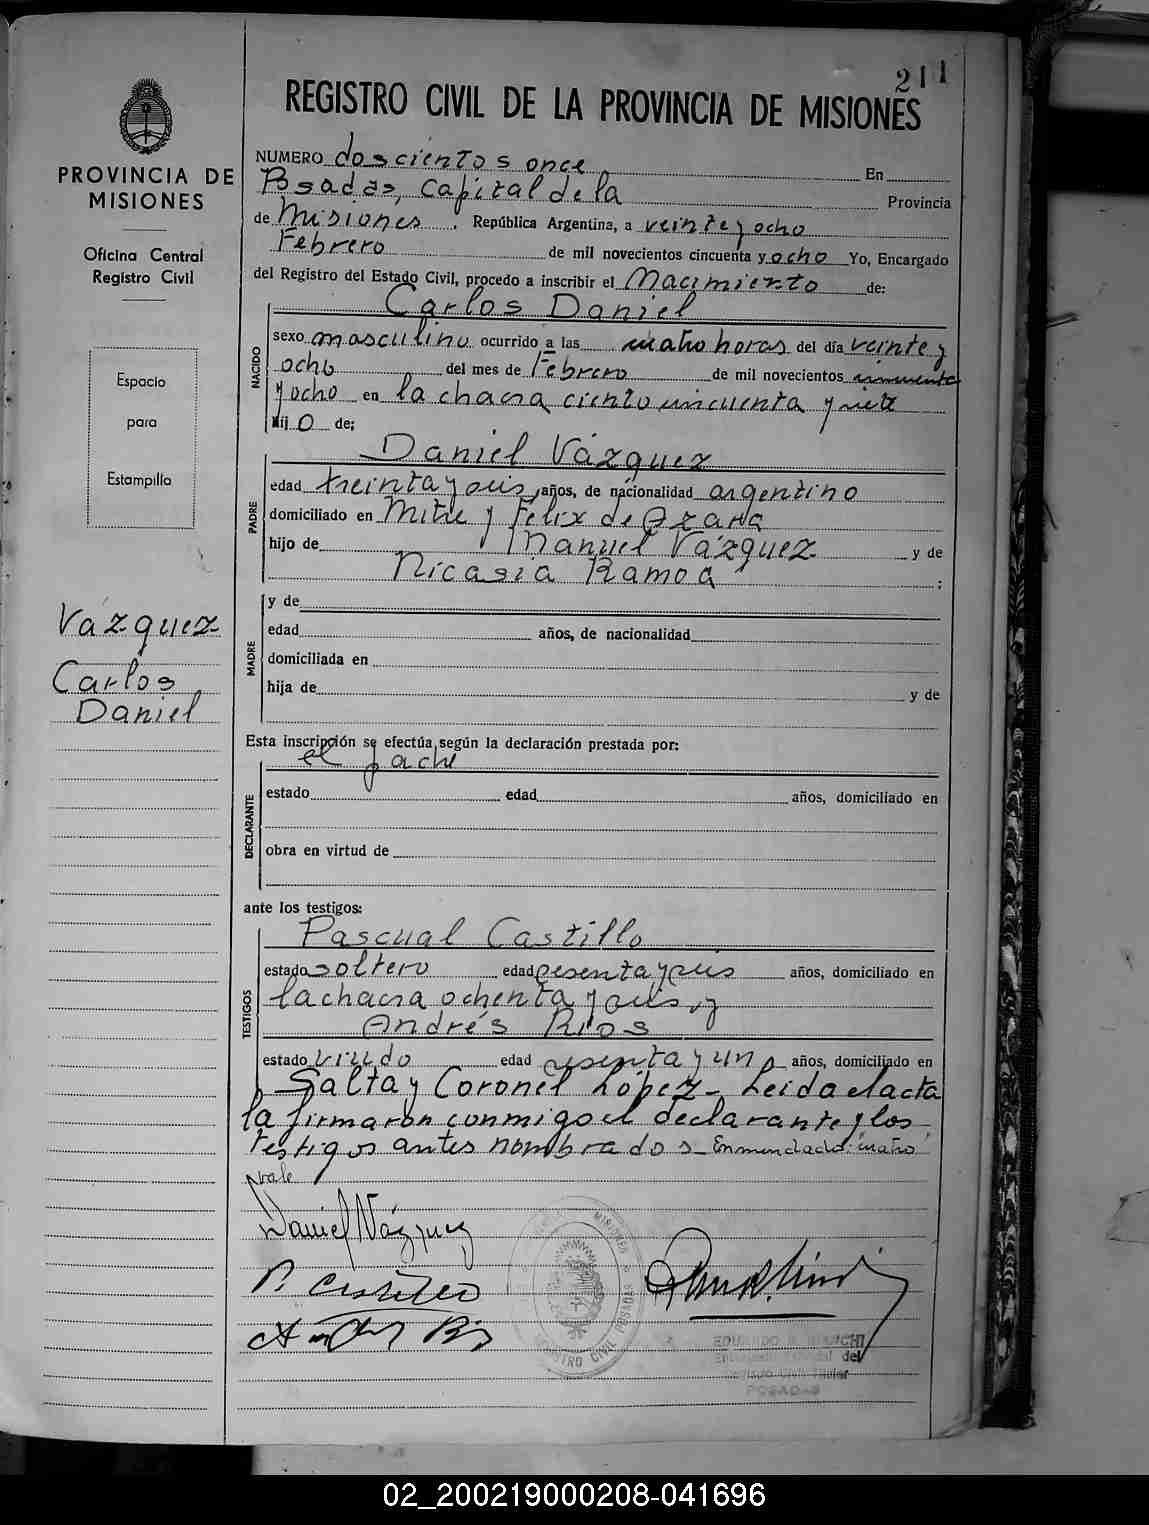 211
REGISTRO CIVIL DE LA PROVINCIA DE MISIONES
PROVINCIA DE
MISIONES
Oficina Central
Registro Civil
Espacio
para
Estampilla
Vázquez
Carlos
Daniel
NUMERO doscientos once En
Posadas, capital de la Provincia
de Misiones. República Argentina, a veinte y ocho
Febrero de mil novecientos cincuenta y ocho Yo, Encargado
del Registro del Estado Civil, procedo a inscribir el Nacimiento de:
NACIDO
Carlos Daniel
sexo masculino ocurrido a las cuatro horas del día veinte y
ocho del mes de Febrero de mil novecientos cincuenta
y ocho en la chacra ciento cincuenta y siete
hij o de;
PADRE
Daniel Vázquez
edad treinta y seis años, de nacionalidad argentino
domiciliado en Mitre y Félix de Azara
hijo de Manuel Vázquez y de
Nicasia Ramoa ;
MADRE
y de
edad años, de nacionalidad
domiciliada en
hija de y de
Esta inscripción se efectúa según la declaración prestada por:
el padre
DECLARANTE
estado edad años, domiciliado en
obra en virtud de
ante los testigos:
TESTIGOS
Pascual Castillo
estado soltero edad sesenta y seis años, domiciliado en
la chacra ochenta y seis, y
Andrés Ríos
estado viudo edad sesenta y un años, domiciliado en
Salta y Coronel López - Leida el acta
la firmaron conmigo el declarante y los
testigos antes nombrados - Enmendado: "cuatro"
vale
Daniel Vázquez
P. Castillo
MISIONES
REGISTRO CIVIL POSADAS
EDUARDO BIANCHI
del
Registro Civil Titular
POSADAS
02_200219000208-041696